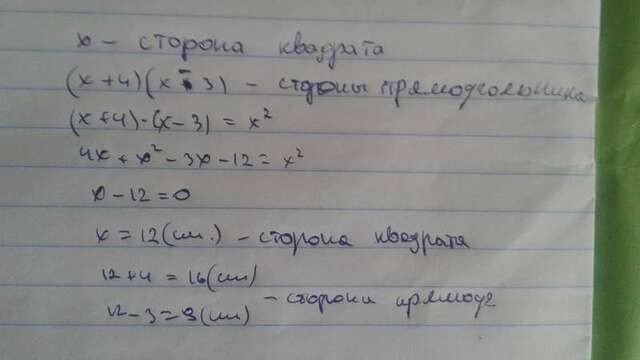 x – сторона квадрата
(x+4)(x-3) – стороны прямоугольника
(x+4)·(x-3) = x²
4x + x² - 3x - 12 = x²
x - 12 = 0
x = 12 (см.) – сторона квадрата
12+4 = 16 (см)
– стороны прямоуг
12 - 3 = 9 (см)